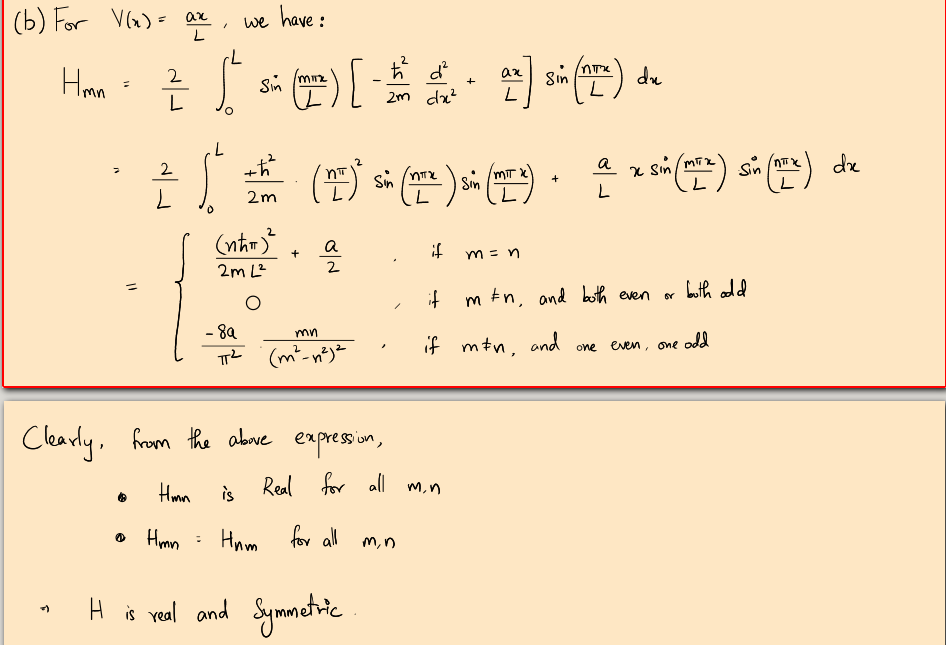 (b) For V(x) = ax/L , we have :
H_mn = 2/L ∫_0^L sin (mπx/L) [ - ħ²/2m d²/dx² + ax/L ] sin (nπx/L) dx
= 2/L ∫_0^L +ħ²/2m · (nπ/L)² sin (nπx/L) sin (mπx/L) + a/L x sin (mπx/L) sin (nπx/L) dx
= { (nħπ)²/2mL² + a/2 , if m = n
0 , if m ≠ n, and both even or both odd
-8a/π² mn/(m²-n²)² , if m ≠ n, and one even, one odd
Clearly, from the above expression,
• H_mn is Real for all m,n
• H_mn = H_nm for all m,n
⇒ H is real and Symmetric.